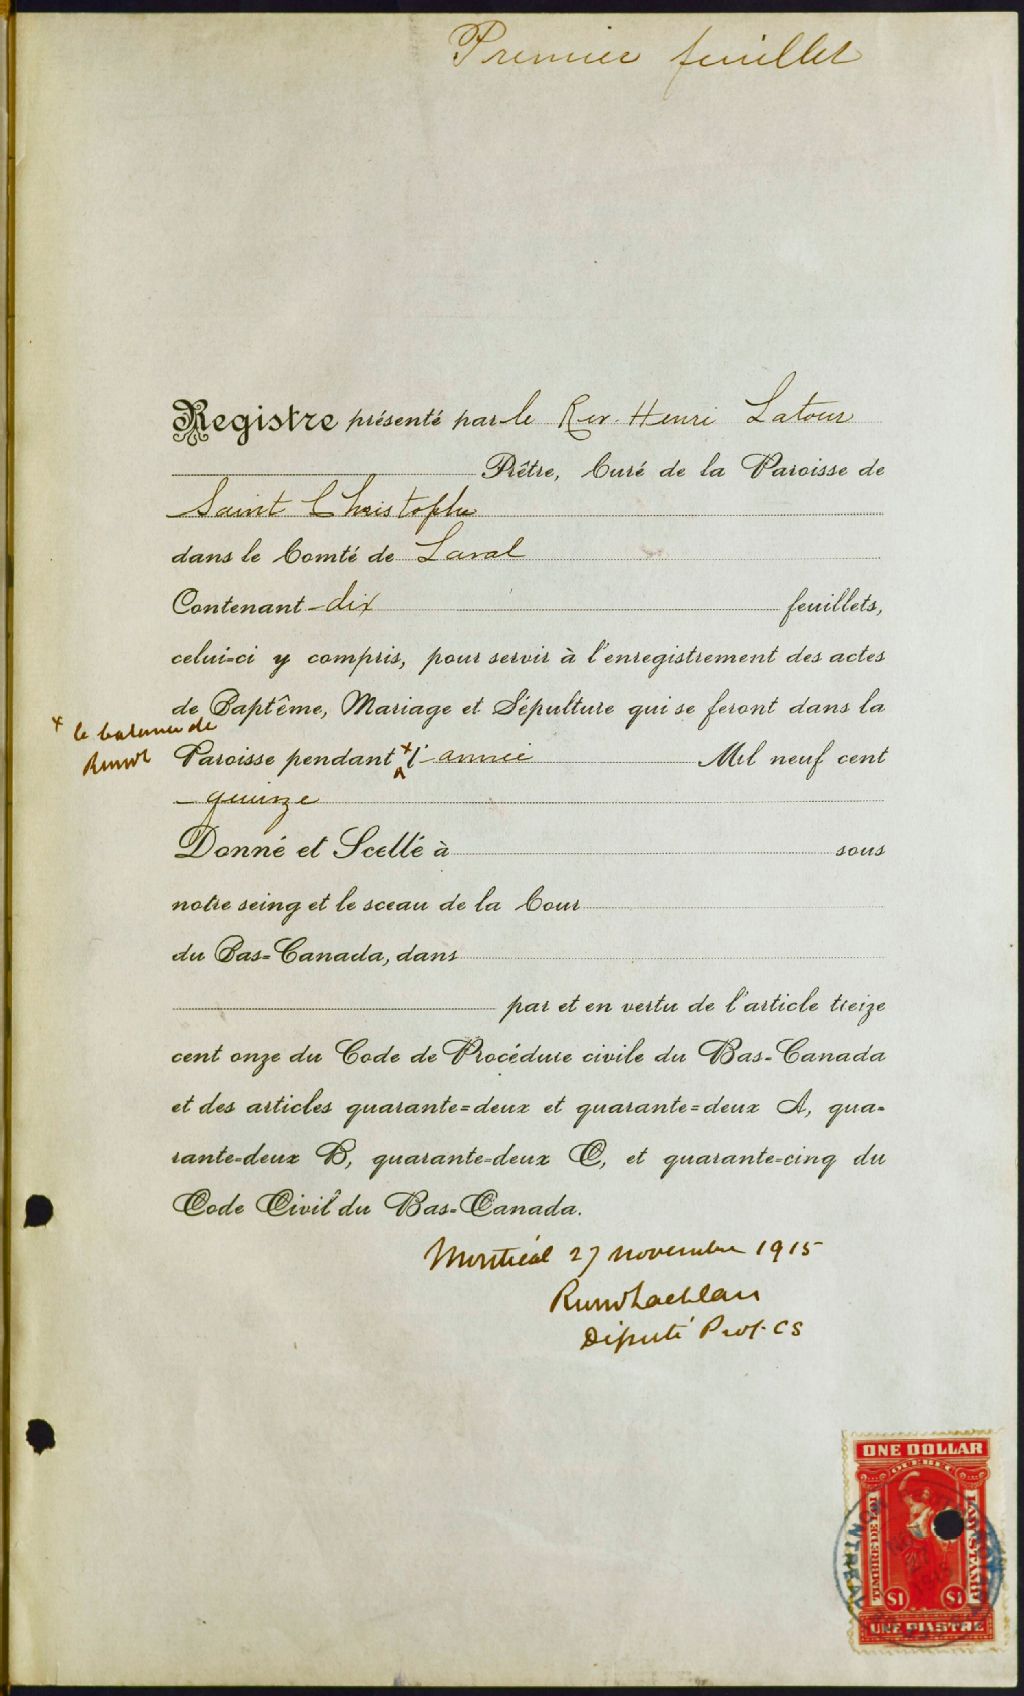 Premier feuillet
Registre présenté par le Rev. Henri Latour
Prêtre, Curé de la Paroisse de
Saint Christophe
dans le Comté de Laval
Contenant - dix feuillets,
celui-ci y compris, pour servir à l'enregistrement des actes
de Baptême, Mariage et Sépulture qui se feront dans la
x la balance de
Paroisse pendant x l'année Mil neuf cent
- quinze
Donné et Scellé à sous
notre seing et le sceau de la Cour
du Bas-Canada, dans
par et en vertu de l'article treize
cent onze du Code de Procédure civile du Bas-Canada
et des articles quarante=deux et quarante=deux A, qua-
rante=deux B, quarante=deux C, et quarante=cinq du
Code Civil du Bas-Canada.
Montréal 27 novembre 1915
Député Prot. CS
ONE DOLLAR
QUEBEC
TIMBRE DE LOI
LAW STAMP
MONTREAL
NOV
27
1915
$1 $1
UNE PIASTRE